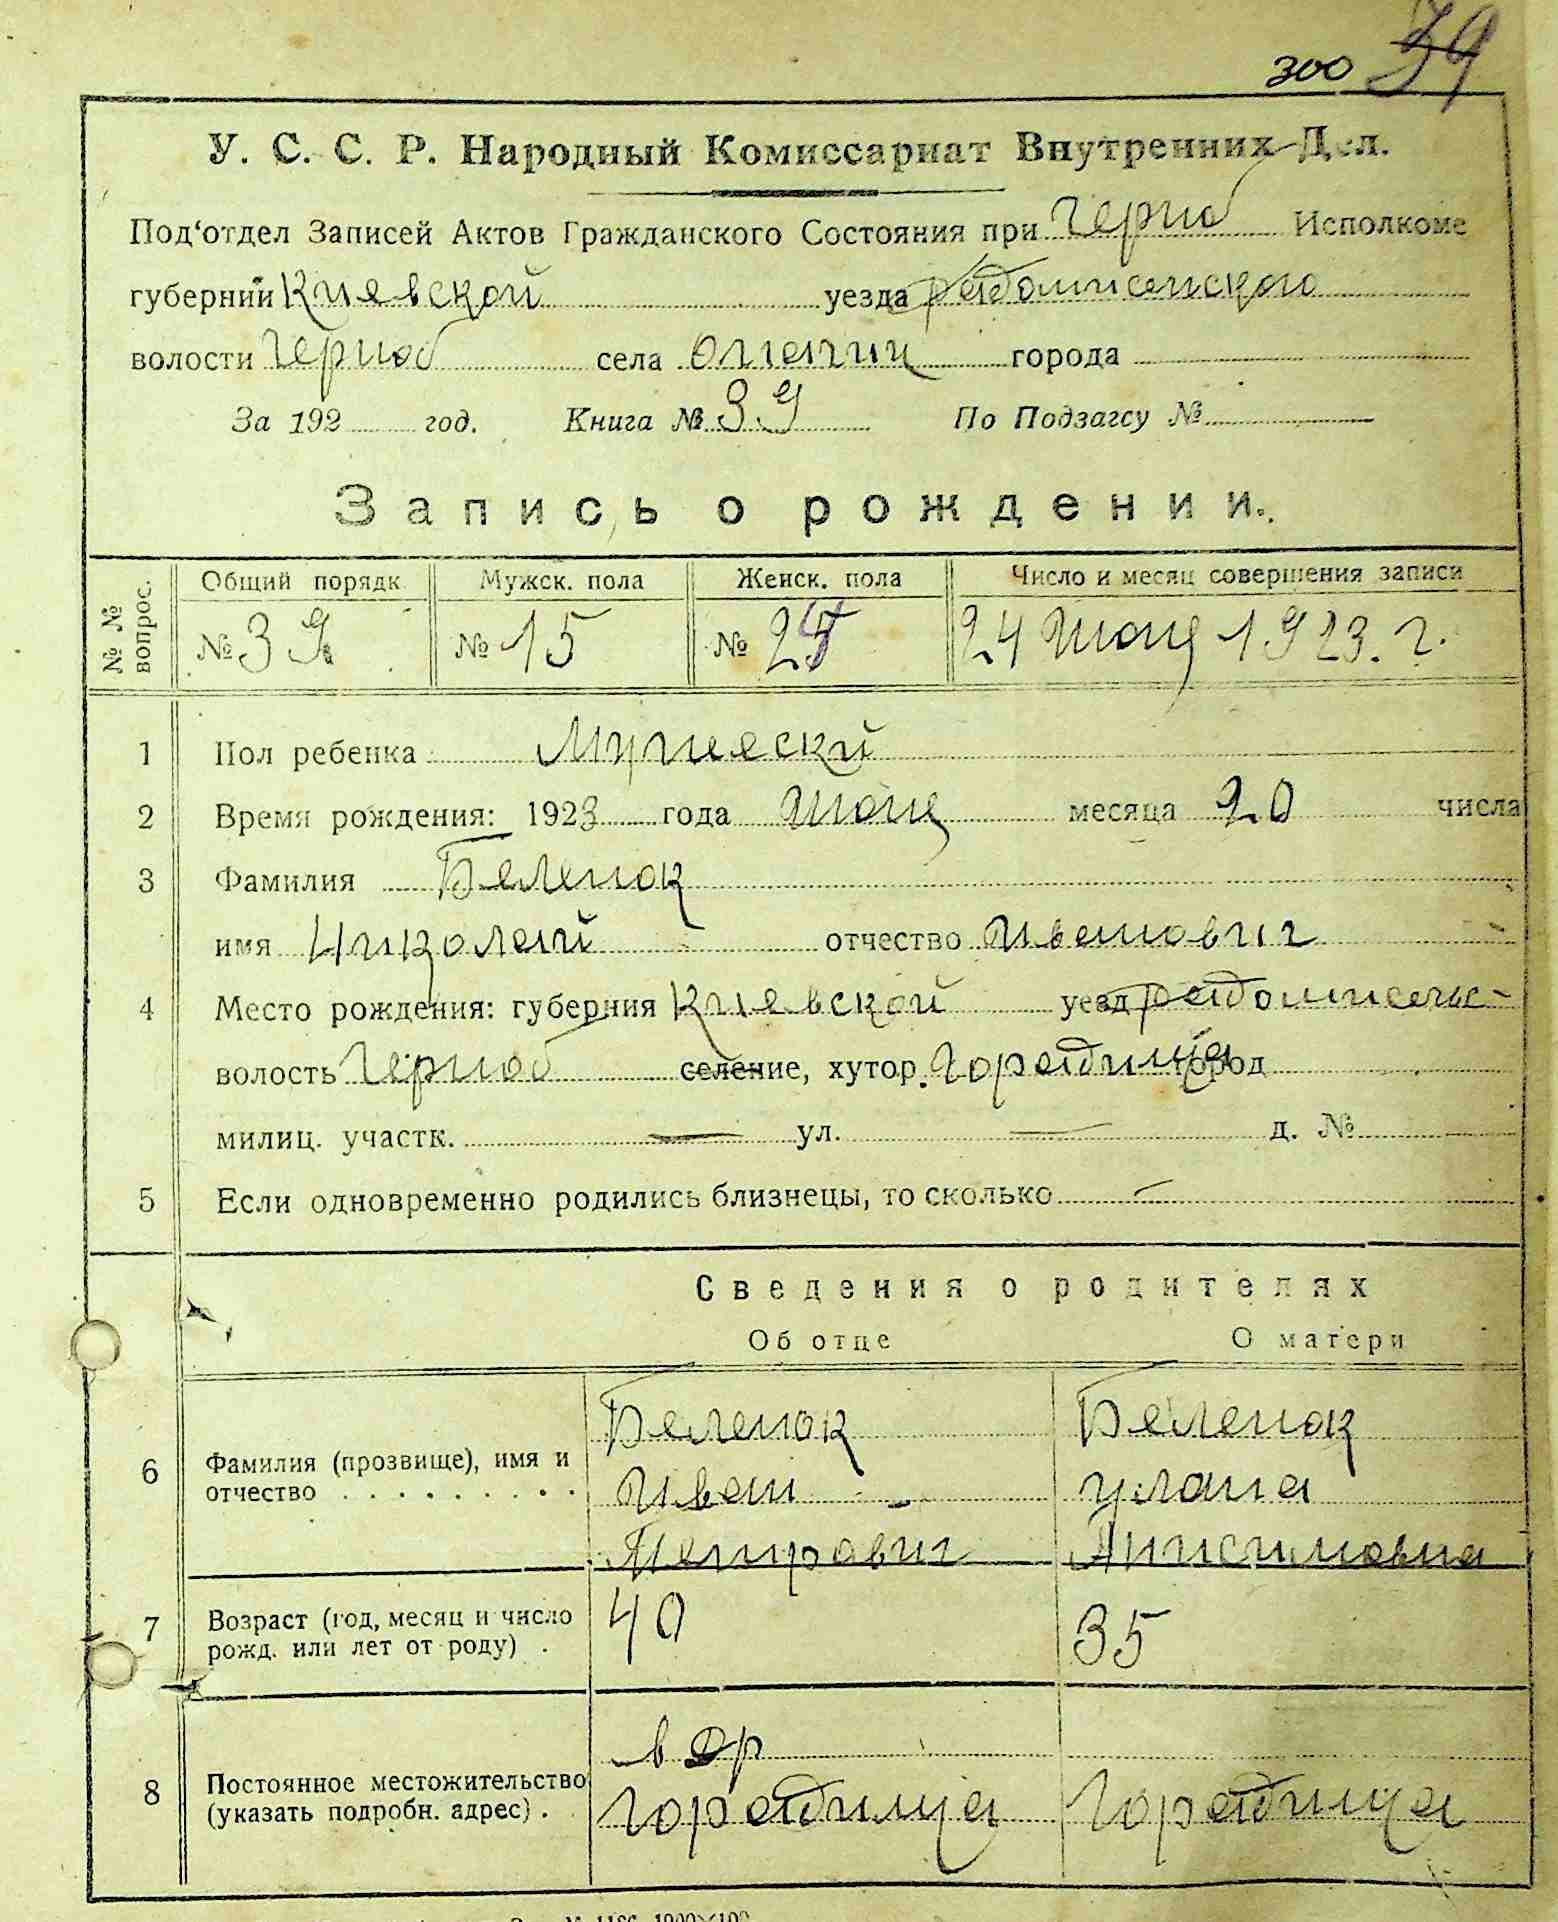 300 39
У. С. С. Р. Народный Комиссариат Внутренних Дел.
Под'отдел Записей Актов Гражданского Состояния при Черноб Исполкоме
губернии Киевской уезда Радомисельского
волости Черноб села города
За 192 год. Книга № 39 По Подзагсу №
Запись о рождении.
№ № вопрос. Общий порядк Мужск. пола Женск. пола Число и месяц совершения записи
№ 39 № 15 № 24 Июня 1923. г.
1 Пол ребенка Мужеский
2 Время рождения: 1923 года Июня месяца 20 числа
3 Фамилия Беленок
имя Николай отчество Иванович
4 Место рождения: губерния Киевской уезд Радомисельс-
волость Черноб селение, хутор. Городища город
милиц. участк. — ул. — д. №
5 Если одновременно родились близнецы, то сколько —
Сведения о родителях
Об отце О матери
Беленок Беленок
6 Фамилия (прозвище), имя и Иван Улана
отчество . . . . . . . . . Петрович Анисимовна
7 Возраст (год, месяц и число 40 35
рожд. или лет от роду) .
в др
8 Постоянное местожительство Городища Городища
(указать подробн. адрес) .